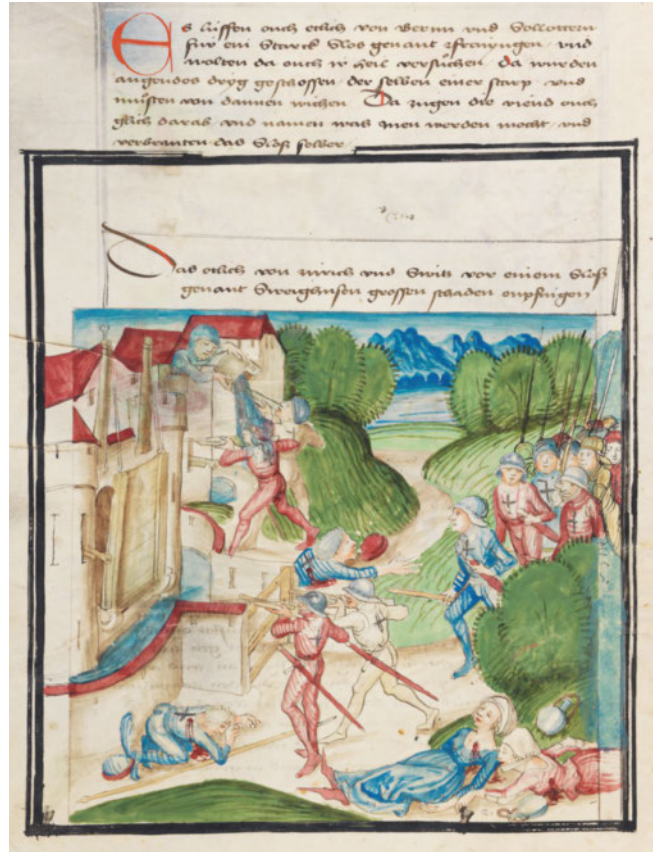 Es lüffen ouch etlich von Bernn und Sollottern
für ein starck Slos genant und
wolten da ouch ir heil versuchen Da wurden
angendes dryg geschossen der selben einer starp und
müsten von dannen wichen Da zugen die viend ouch
glich darab und namen was inen werden mocht und
verbranten das Slos selber
Das etlich von zurich und Switz vor einem Slos
genant Sweighusen grossen schaden enpfiengen